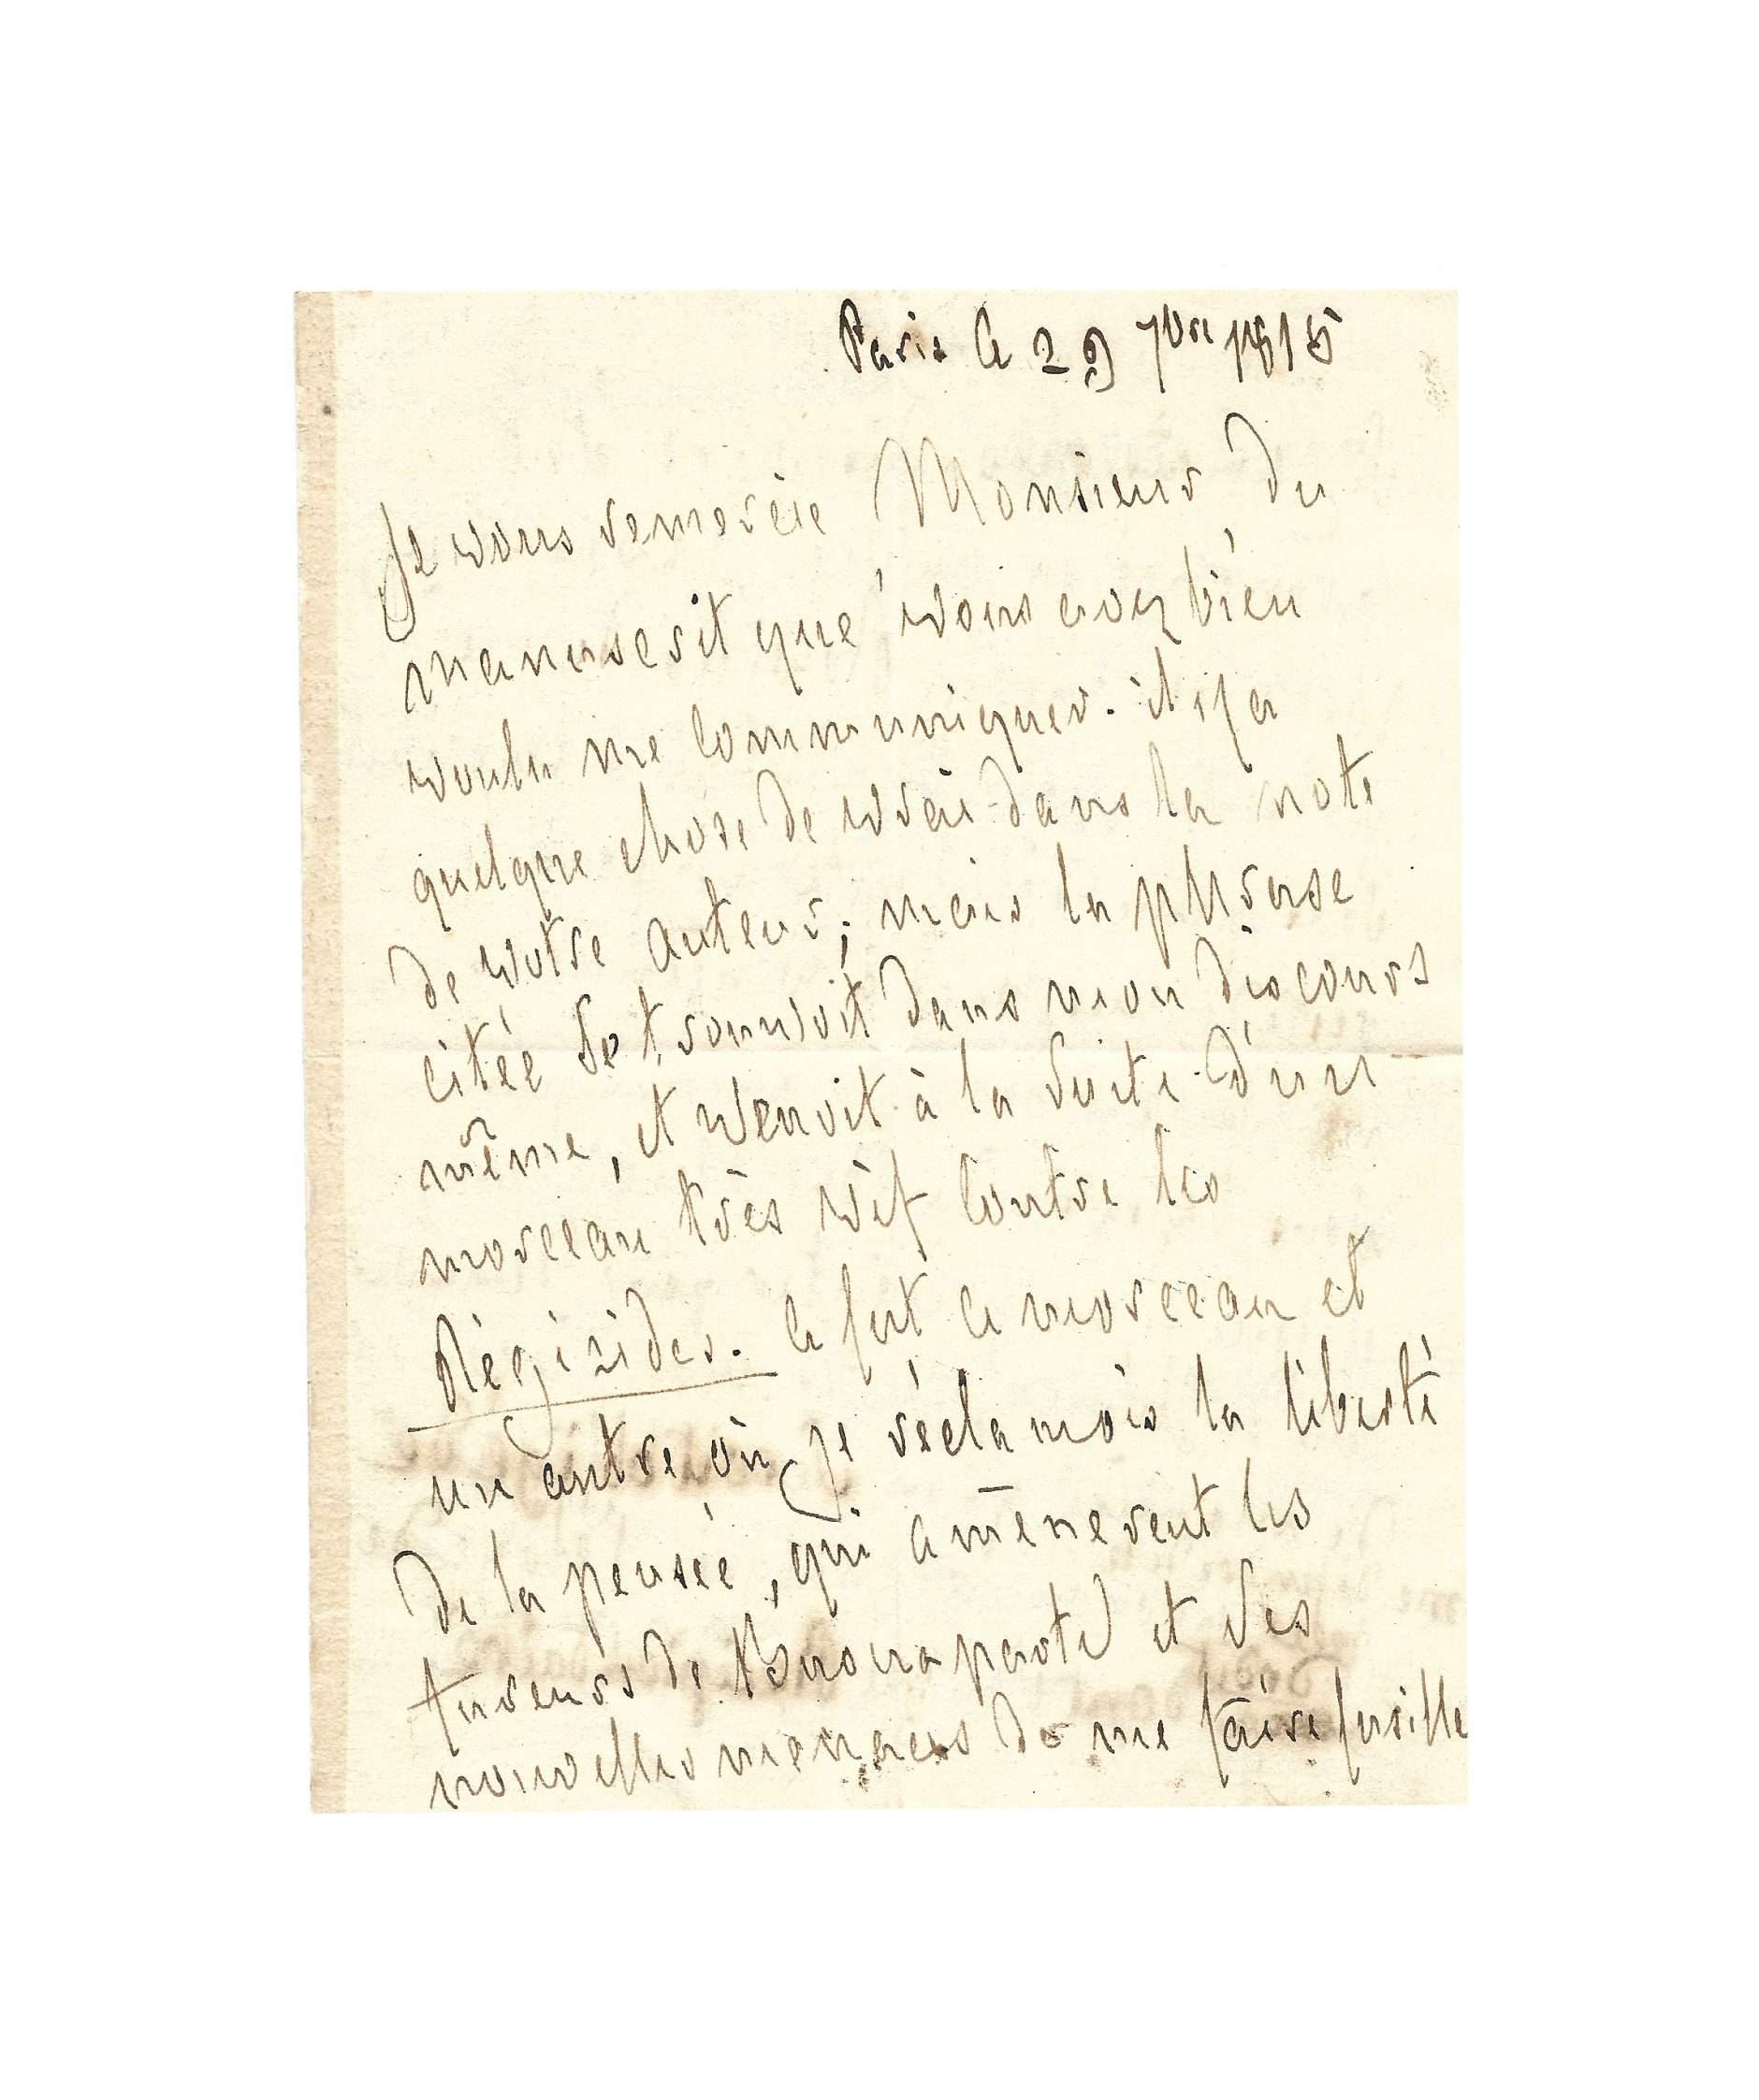 Paris le 29 7bre 1815
Je vous remercie Monsieur, du
manuscrit que vous avez bien
voulu me communiquer. il y a
quelque chose de vrai dans la note
de votre auteur; mais la phrase
citée se trouvoit dans mon discours
même, et venoit à la suite d'un
morceau très vif contre les
Régicides. ce fut ce morceau et
un autre où je réclamois la liberté
de la pensée, qui amenèrent les
fureurs de Buonaparte et ses
nouvelles menaces de me faire fusille